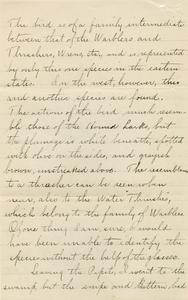 The bird is of a family intermediate
between that of the Warblers and
Thrashers, Wrens, etc. and is represented
by only this one species in the eastern
states. In the west, however, this
and another species are found.
The actions of the bird much resem-
bly those of the Horned Larks, but
the plumage is white beneath, spotted
with olive on the sides, and grayish
brown, unstreaked above. The resemblance
to a thrasher can be seen when
near, also to the Water Thrushes,
which belong to the family of Warblers.
Of one thing I am sure, I would
have been unable to identify the
species without the help of the glasses.
Leaving the Pipits, I went to the
swamp but the snipe and bittern had